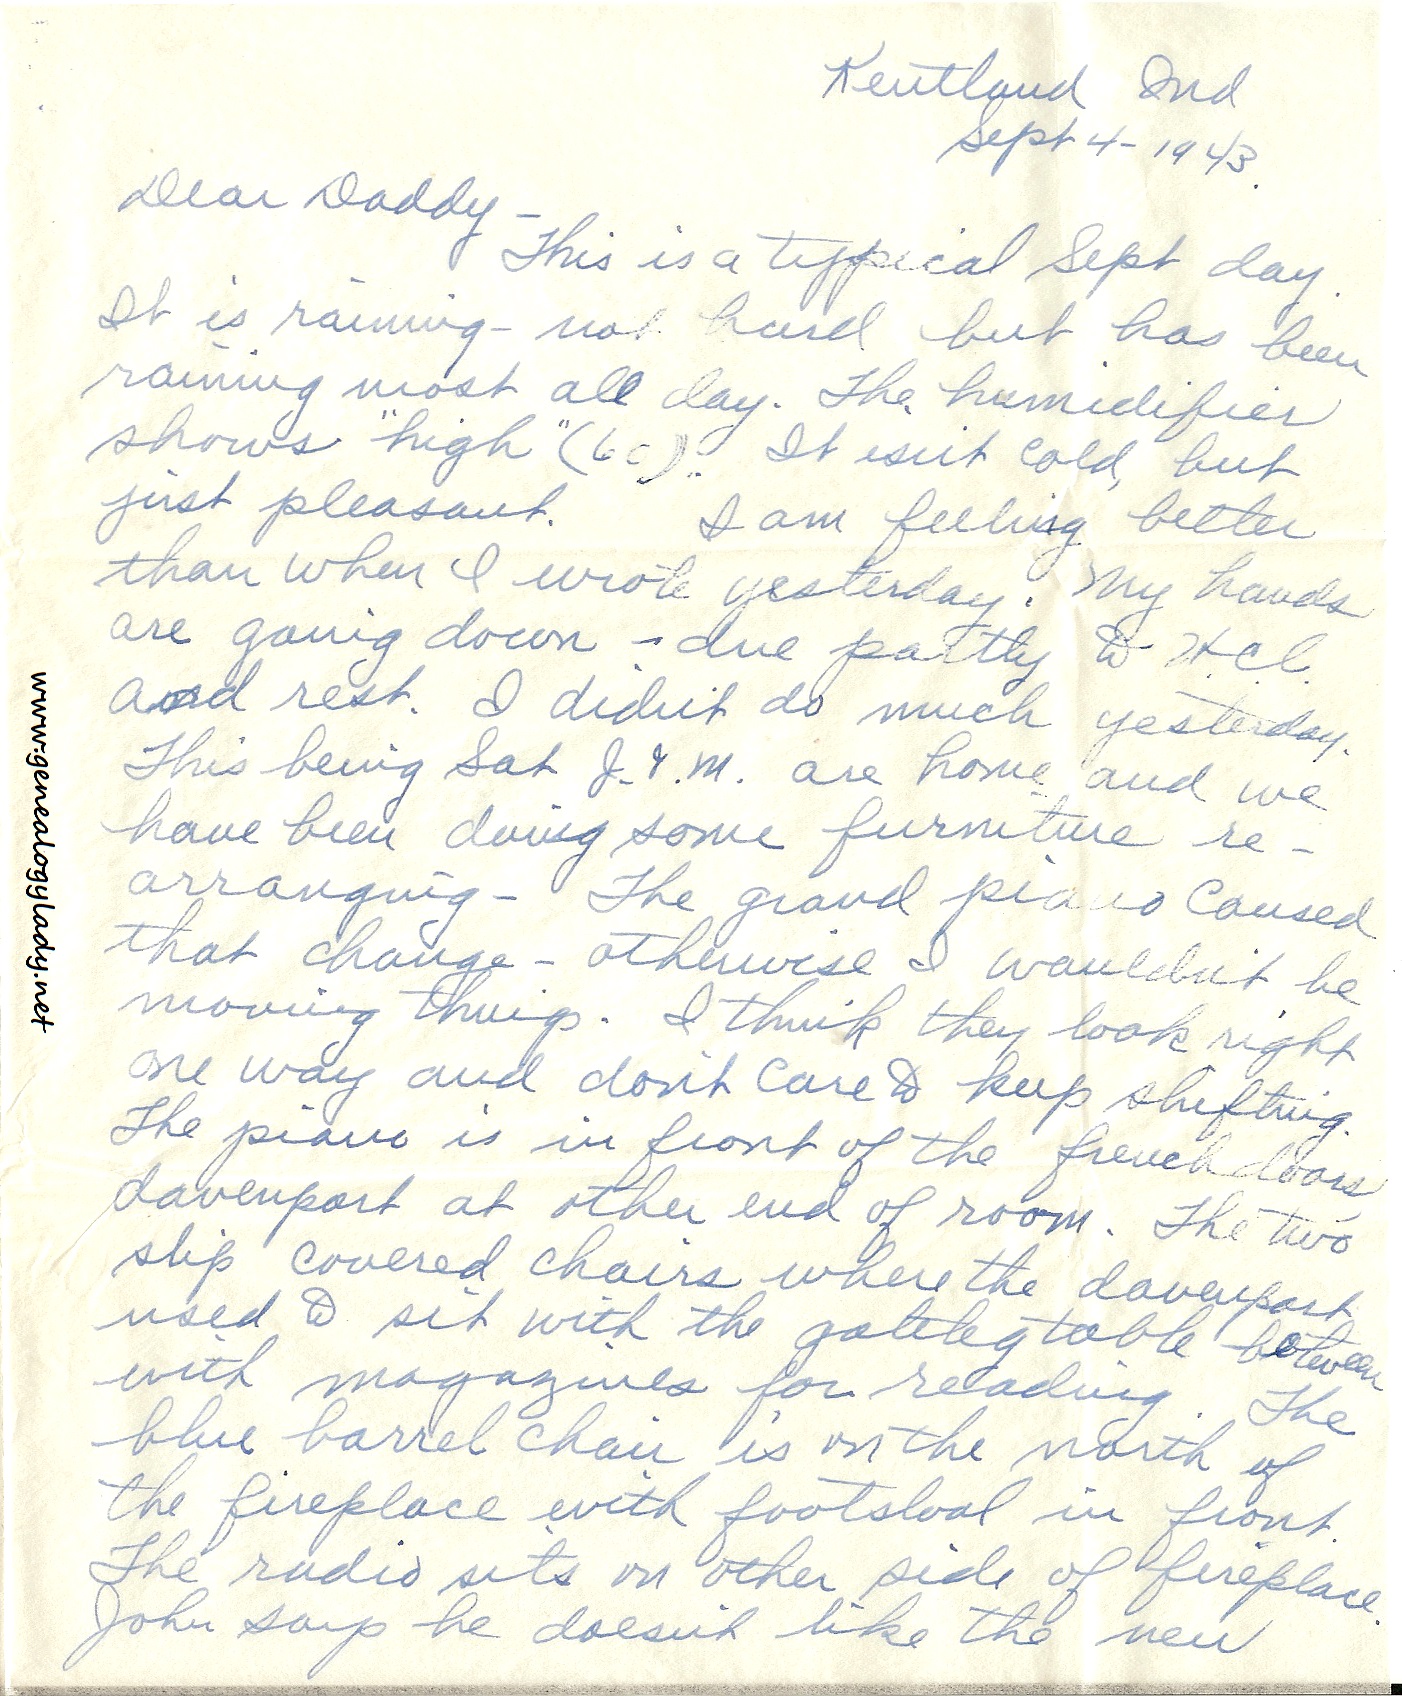 Kentland Ind
Sept 4- 1943.
Dear Daddy -
This is a typical Sept day.
It is raining - not hard but has been
raining most all day. The humidifier
shows "high" (60). It isn't cold, but
just pleasant. I am feeling better
than when I wrote yesterday. My hands
are going down - due partly to H.C.l.
and rest. I didn't do much yesterday.
This being Sat J. & M. are home and we
have been doing some furniture re-
arranging - The grand piano caused
that change - otherwise I wouldn't be
moving things. I think they look right
one way and don't care to keep shifting.
The piano is in front of the french doors
davenport at other end of room. The two
slip covered chairs where the davenport
used to sit with the gateleg table between
with magazines for reading. The
blue barrel chair is on the north of
the fireplace with footstool in front.
The radio sits on other side of fireplace.
John says he doesn't like the new
www.genealogylady.net